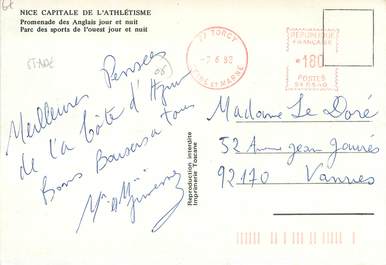 NICE CAPITALE DE L'ATHLÉTISME
Promenade des Anglais jour et nuit
Parc des sports de l'ouest jour et nuit
STADE
(06)
Meilleures Pensées
de la Côte d'Azur
Bons Baisers a tous
77 TORCY
-7.6.82
SEINE ET MARNE
REPUBLIQUE
FRANCAISE
*180
POSTES
Reproduction interdite
Imprimerie Toscane
Madame Le Doré
52 Avenue Jean Jaurès
92170 Vanves